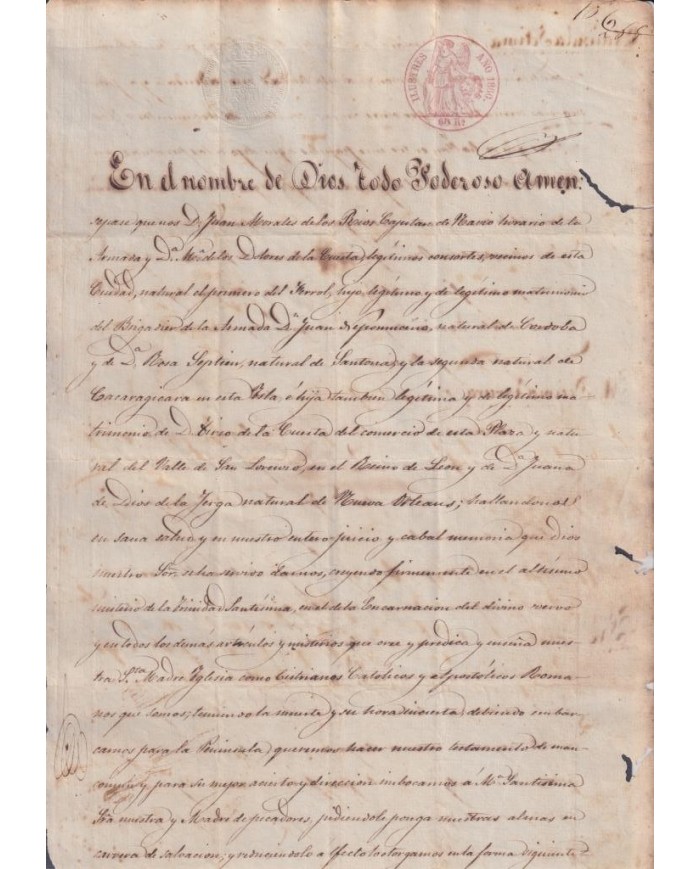 ILUSTRES AÑO 1860.
60 Rs
En el nombre de Dios todo Poderoso Amen:
sepase que nos Dn. Juan Morales de los Rios Capitan de Navio honorario de la
Armada y Da. Ma. de los Dolores de la Cuesta, legítimos consortes, vecinos de esta
Ciudad, natural el primero del Ferrol, hijo legítimo y de legítimo matrimonio
del Brigadier de la Armada Dn. Juan Nepomuceno, natural de Cordoba
y de Da. Rosa Septien, natural de Santona, y la segunda natural de
Cacaragicara en esta Ysla é hija tambien legítima y de legítimo ma
trimonio de D. Tirso de la Cuesta del comercio de esta Plaza y natu
ral del Valle de San Lorenzo, en el Reino de Leon y de Da. Juana
de Dios de la Jerga natural de Nueva Orleans; hallandonos
en sana salud y en nuestro entero juicio y cabal memoria que dios
nuestro Sor. se ha servido darnos, creyendo firmemente en el altísimo
misterio de la Trinidad Santísima, en el de la Encarnacion del divino vervo
y en todos los demas artículos y misterios que cree y predica y enseña nues
tra Sta. Madre Yglesia como Cristianos Catolicos y Apostólicos Roma
nos que somos; temiendo la muerte y su hora incierta, debiendo embar
carnos para la Península, queremos hacer nuestro testamento de man
comun y para su mejor acierto y direccion imbocando á Ma. Santísima
Sra nuestra y Madre de pecadores, pidiendole ponga nuestras almas en
carrera de salvacion; y reduciendolo a efecto lo otorgamos en la forma siguiente